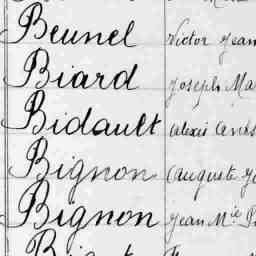 Beunel Victor Jean
Biard Joseph Ma
Bidault Alexis
Bignon Auguste
Bignon Jean M.ie P